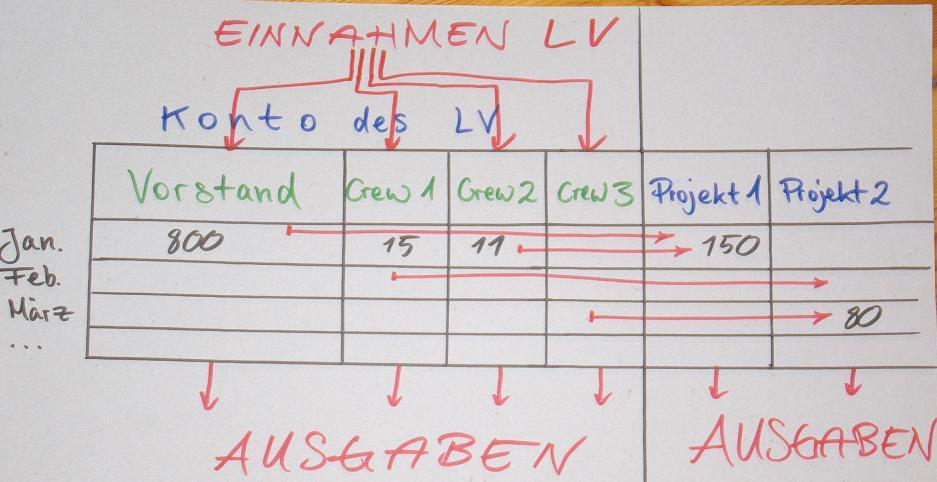 EINNAHMEN LV
Konto des LV
Vorstand Crew 1 Crew 2 Crew 3 Projekt 1 Projekt 2
Jan. 800 15 11 150
Feb.
März 80
...
AUSGABEN AUSGABEN